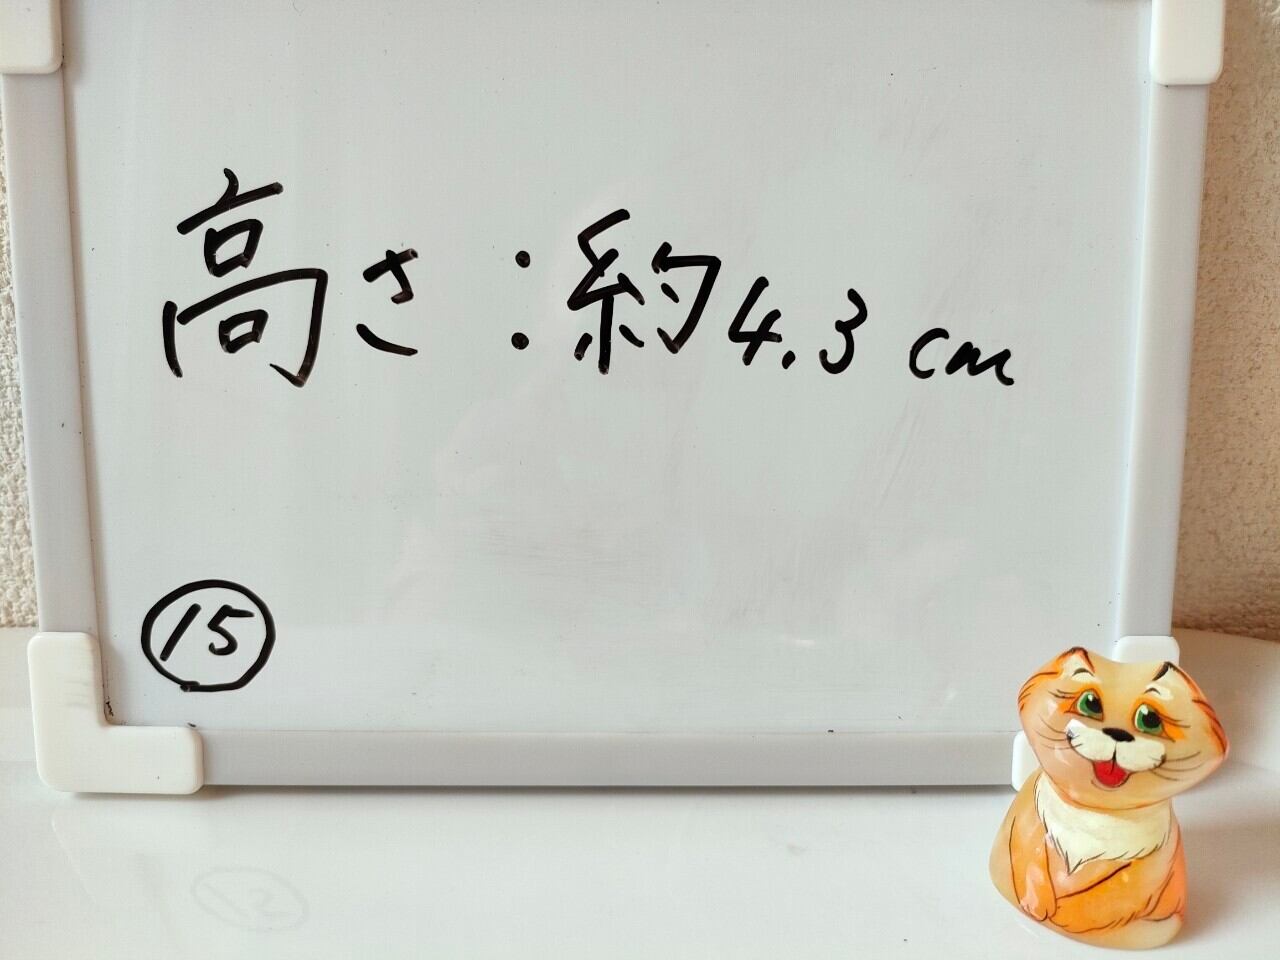 高さ：約4.3cm
⑮